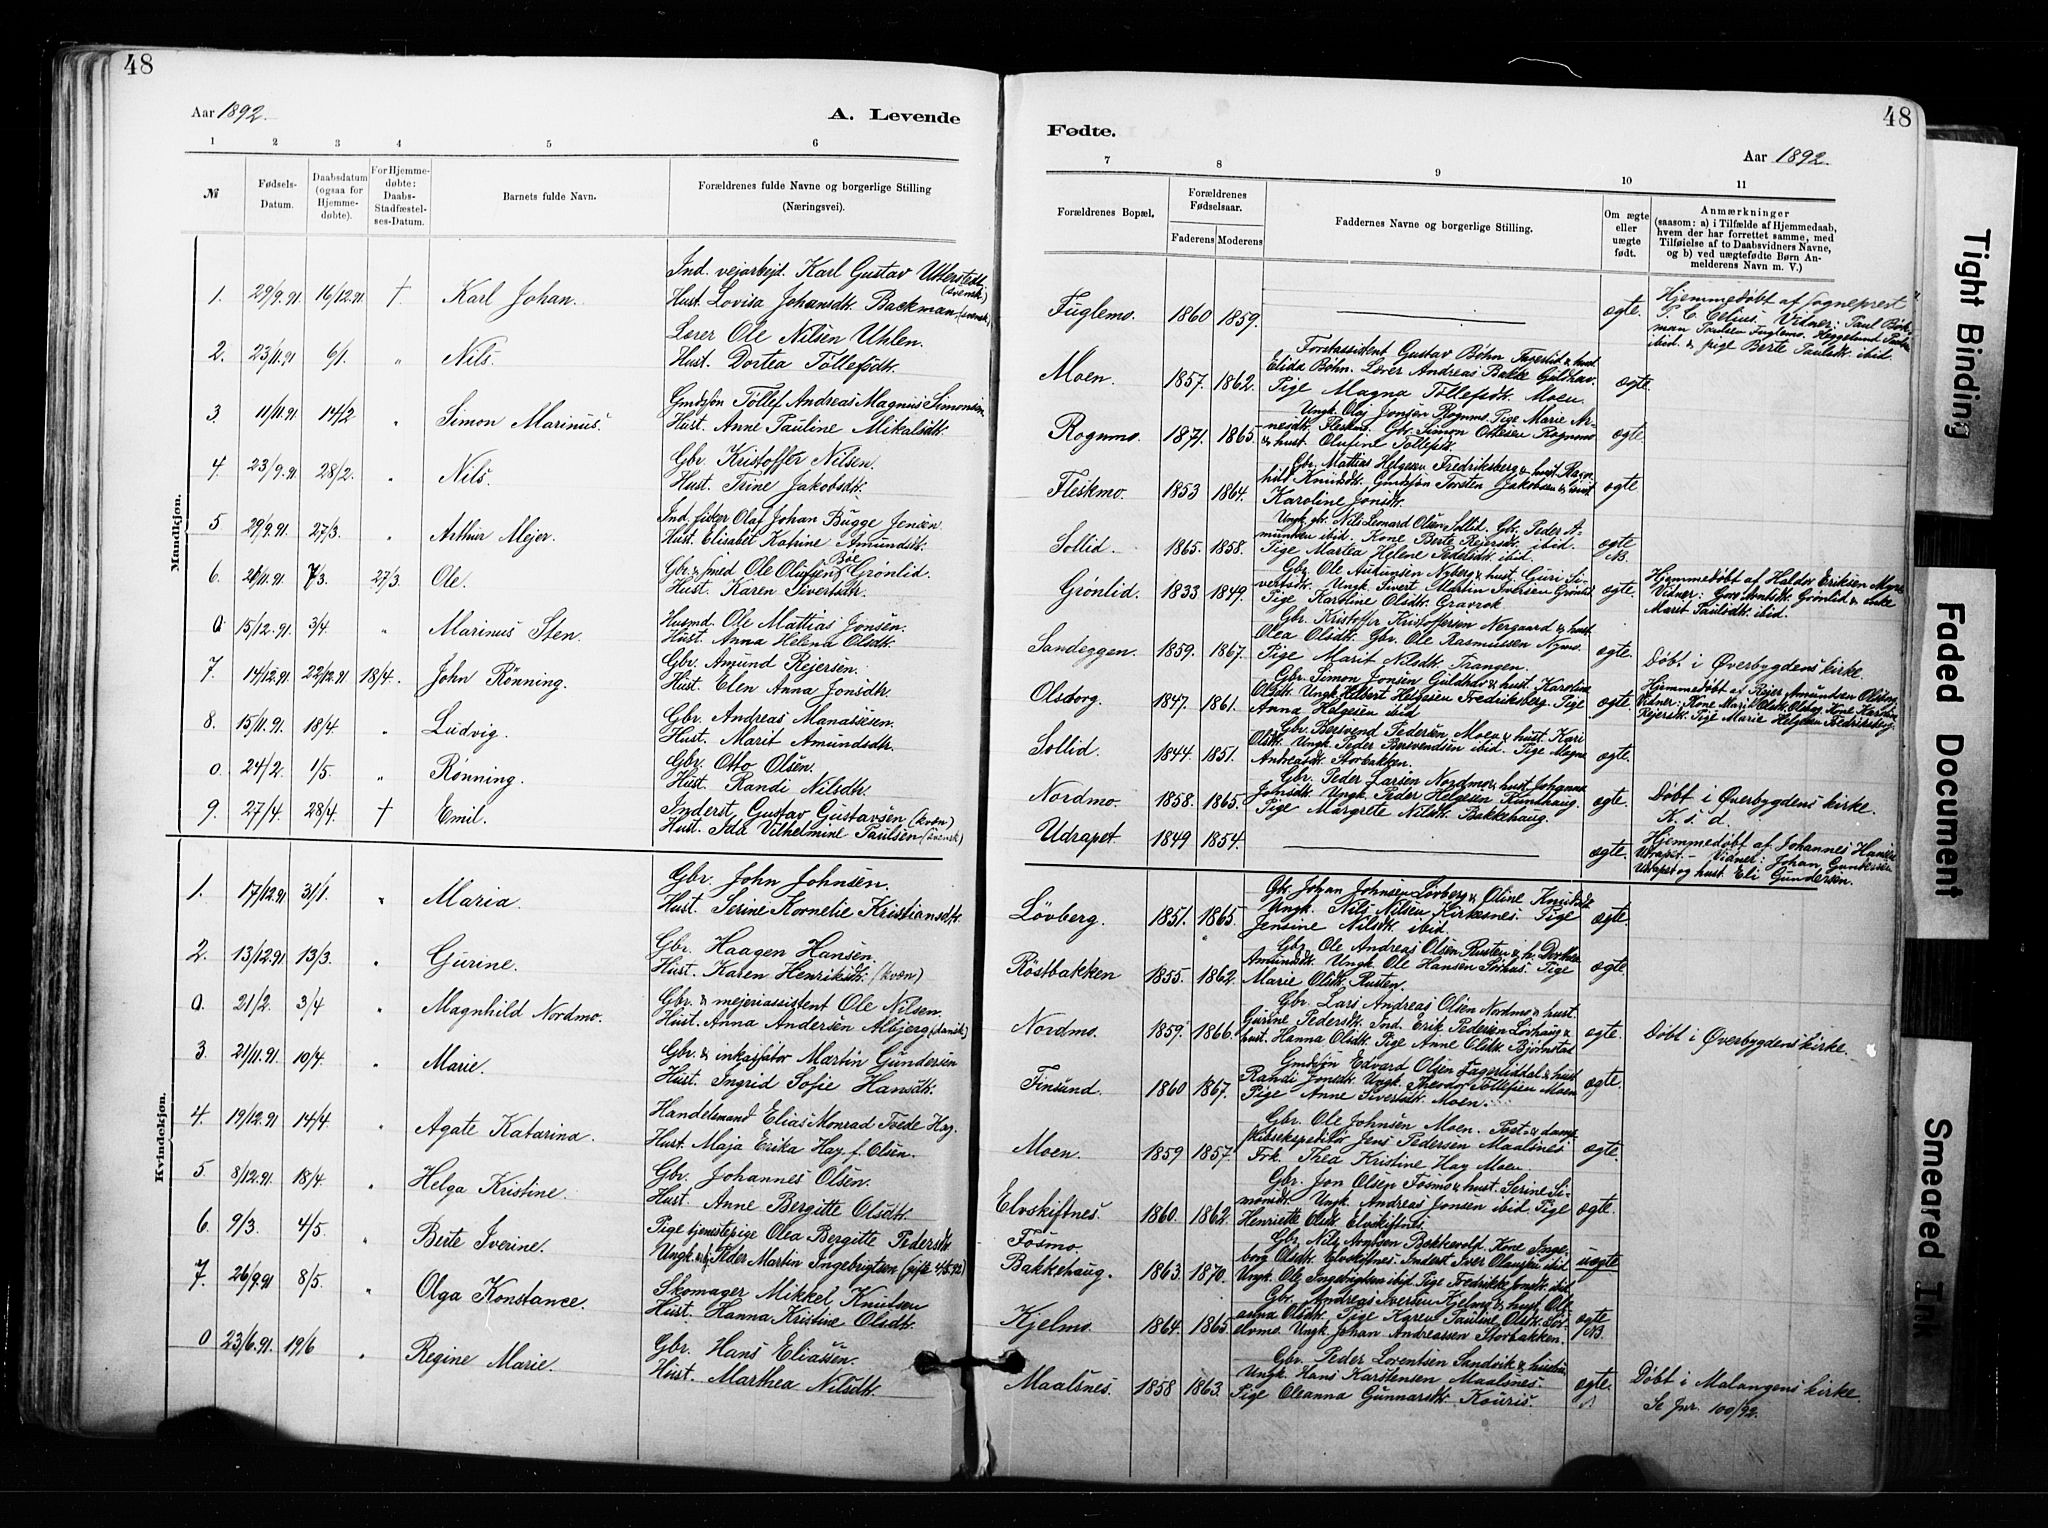 48
Aar 1892.
A. Levende
1 2 3 4 5 6
№ Fødsels-Datum. Daabsdatum (ogsaa for Hjemmedøbte). For Hjemmedøbte: Daabs-Stadfæstelses-Datum. Barnets fulde Navn. Forældrenes fulde Navne og borgerlige Stilling (Næringsvei).
Mandkjøn.
Ind. vejarbejd. Karl Gustav Utterstedt (svensk)
1. 29/9.91 16/12.91 † Karl Johan. Hust. Lovisa Johansdtr. Backman (svensk)
Lærer Ole Nilsen Uhlen.
2. 23/11.91 6/1. " Nils. Hust. Dortea Tollefsdtr.
Gmdsøn Tollef Andreas Magnus Simonsen
3. 11/11.91 14/2 " Simon Marinus. Hust. Anne Pauline Mikalsdtr.
Gbr. Kristoffer Nilsen.
4. 23/9.91 28/2. " Nils. Hust. Trine Jakobsdtr.
Ind. fisker Olaf Johan Bugge Jensen
5 29/9.91. 27/3. " Arthur Mejer. Hust. Elisabet Katrine Amundsdtr.
Gbr. & smed Ole Olufsen Bøe Grønlid.
6. 21/11.91. 7/3. 27/3. Ole. Hust. Karen Sivertsdtr.
Husmd. Ole Mattias Jonsen.
0 15/12.91. 3/4. " Marinus Sten. Hust. Anna Helena Olsdtr.
Gbr. Amund Rejersen.
7. 14/12.91 22/12.91 18/4. John Rønning. Hust. Elen Anna Jonsdtr.
Gbr. Andreas Manassesen.
8. 15/11.91. 18/4. " Ludvig. Hust. Marit Amundsdtr.
Gbr. Otto Olsen.
0. 24/2. 1/5. " Rønning. Hust. Randi Nilsdtr.
Inderst Gustav Gustavsen (kvæn)
9. 27/4. 28/4. † Emil. Hust. Ida Vilhelmine Paulsen (svensk)
Kvindekjøn.
Gbr. John Johnsen.
1. 17/12.91 31/1. " Maria. Hust. Serine Kornelie Kristiansdtr.
Gbr. Haagen Hansen.
2. 13/12.91 13/3. " Gurine. Hust. Karen Henriksdtr. (kvæn)
Gbr. & mejeriassistent Ole Nilsen.
0. 21/2. 3/4 " Magnhild Nordmo. Hust. Anna Andersen Albjerg (dansk)
Gbr. & inkassator Martin Gundersen
3. 21/11.91. 10/4. " Marie. Hust. Ingrid Sofie Hansdtr.
Handelsmand Elias Monrad Tvede Hay.
4. 19/12.91 14/4. " Agate Katarina. Hust. Maja Erika Hay f. Olsen.
Gbr. Johannes Olsen.
5 8/12.91. 18/4. " Helga Kristine. Hust. Anne Bergitte Olsdtr.
Pige tjenestepige Olea Bergitte Pedersdtr.
6. 9/3. 4/5. " Berte Iverine. Ungk. Peder Martin Ingebrigtsen (gift 4/5.92)
Skomager Mikkel Knutsen
7. 26/9.91 8/5. " Olga Konstance. Hust. Hanna Kristine Olsdtr.
Gbr. Hans Eliassen.
0 23/6.91. 19/6 " Regine Marie. Hust. Marthea Nilsdtr.
48
Fødte.
Aar 1892.
7 8 9 10 11
Forældrenes Bopæl. Forældrenes Fødselsaar. Faderens Moderens Faddernes Navne og borgerlige Stilling. Om ægte eller uægte født. Anmærkninger (saasom: a) i Tilfælde af Hjemmedaab, hvem der har forrettet samme, med Tilføielse af to Daabsvidners Navne, og b) ved uægtefødte Børn Anmelderens Navn m. V.)
Fuglemo. 1860 1859. ægte. Hjemmedøbt af sogneprest
P. C. Celius. Vidner: Paul
Fuglemo.
ibid. & pige Berte Paulsdtr. ibid.
Forstassistent Gustav Bøhn Fagerlid & hust.
Elida Bøhn. Lærer Andreas Bakke Guldhav.
Moen. 1857. 1862. Pige Magna Tollefsdtr. Moen. ægte.
Ungk. Olaf Jonsen Rognmo. Pige Marie Arnesdtr. Fleskmo. Gbr. Simon Ottesen Rognmo
Rognmo. 1871. 1865. & hust. Olufine Tollefsdtr. ægte.
Gbr. Mattias Helgesen Fredriksberg & hust. Ragnhild Knudsdtr. Gmdsøn Torsten Jakobsen & hust.
Fleskmo. 1853 1864. Karoline Jonsdtr. ægte
Ungk. gbr. Nils Leonard Olsen Sollid. Gbr. Peder Amundsen ibid. Kone Berte Rejersdtr. ibid.
Sollid. 1865. 1858. Pige Martea Helene Pedersdtr. ibid. ægte NB.
Gbr. Ole Amundsen Nyberg & hust. Guri Sivertsdtr. Ungk. Sivert Martin Iversen Grønlid
Grønlid. 1833 1849. Pige Karoline Olsdtr. Gravrok ægte. Hjemmedøbt af Haldor Eriksen Moen
Vidner: Grønlid & enke
Maret Paulsdtr. ibid.
Gbr. Kristoffer Kristoffersen Nergaard & hust.
Olea Olsdtr. Gbr. Ole Rasmussen Nymo.
Sandeggen. 1859. 1867. Pige Marit Nilsdtr. Trangen. ægte. Døbt i Øverbygdens kirke.
Gbr. Simon Jonsen Guldhav & hust. Karoline
Olsdtr. Ungk. Helbert Helgesen Fredriksberg. Pige
Olsborg. 1847. 1861. Anna Helgesen ibid. ægte. Hjemmedøbt af Rejer Amundsen Olsborg
Vidner: Kone Marit Olsdtr. Olsborg, Kone
Rejersdtr. Pige Marie Helgesen Fredriksberg.
Gbr. Bersvend Pedersen Moen & hust. Kari
Olsdtr. Ungk. Peder Bersvendsen ibid. Pige Magna
Sollid. 1844. 1851. Andreasdtr. Storbakken. ægte.
Gbr. Peder Larsen Nordmo & hust. Johanna
Jonsdtr. Ungk. Peder Helgesen Rundhaug.
Nordmo. 1858. 1865. Pige Margrete Nilsdtr. Bakkehaug. ægte. Døbt i Øverbygdens kirke.
K. s. d.
Udrapet. 1849 1854. ægte. Hjemmedøbt af Johannes Hansen
Udrapet. – Vidner: Johan Gundersen
Udrapet og hust. Eli Gundersen.
Gbr. Johan Johnsen Løvberg & Oline Knudsdtr.
Ungk. Nils Nilsen Kirkesnes. Pige
Løvberg. 1851. 1865. Jensine Nilsdtr. ibid. ægte.
Gbr. Ole Andreas Olsen Rusten & h. Dorthea
Amundsdtr. Ungk. Ole Hansen Sørhus. Pige
Røstbakken 1855. 1862. Marie Olsdtr. Rusten. ægte.
Gbr. Lars Andreas Olsen Nordmo & hust.
Gurine Pedersdtr. Ind. Erik Pedersen Lovhaug &
Nordmo. 1859. 1866. hust. Hanna Olsdtr. Pige Anne Olsdtr. Bjørnstad ægte. Døbt i Øverbygdens kirke.
Gmdsøn Edvard Olsen Fagerliddal & hust.
Randi Jonsdtr. Ungk. Theodor Tollefsen Moen
Finsund. 1860 1867. Pige Anne Sivertsdtr. Moen. ægte.
Gbr. Ole Johnsen Moen. Post- & dampskibsekspeditør Jens Pedersen Maalsnes
Moen. 1859 1857. Frk. Thea Kristine Hay Moen ægte.
Gbr. Jon Olsen Fosmo & hust. Serine Simonsdtr. Ungk. Andreas Jonsen ibid Pige
Elvskiftnes. 1860. 1862. Henriette Olsdtr. Elvskiftnes. ægte.
Fosmo. Gbr. Nils Arntsen Bakkevold. Kone Ingeborg Olsdtr. Elvskiftnes. Inderst Iver Olaussen ibid
Bakkehaug. 1863. 1870. Ungk. Ole Ingebrigtsen ibid. Pige Fredrikke Jonsdtr. ibid. uægte
Gbr. Andreas Iversen Kjelmo & hust. Oleanna Olsdtr. Pige Karen Pauline Olsdtr.
Kjelmo. 1864. 1865 Ungk. Johan Andreassen Storbakken. ægte NB.
Gbr. Peder Lorentsen Sandvik & hustru
Ungk. Hans Karstensen Maalsnes.
Maalsnes. 1858 1863. Pige Oleanna Gunnarsdtr. Kouris. ægte. Døbt i Malangens kirke.
Se Jnr. 100/92.
Tight Binding
Faded Document
Smeared Ink